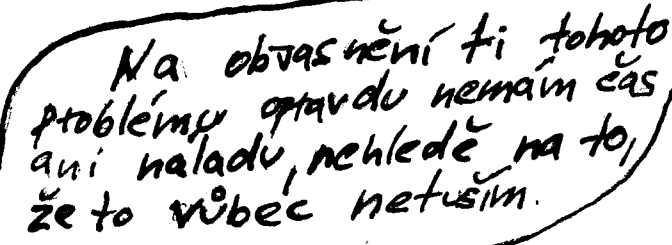 Na objasnění ti tohoto
problému opravdu nemám čas
ani náladu, nehledě na to,
že to vůbec netuším.